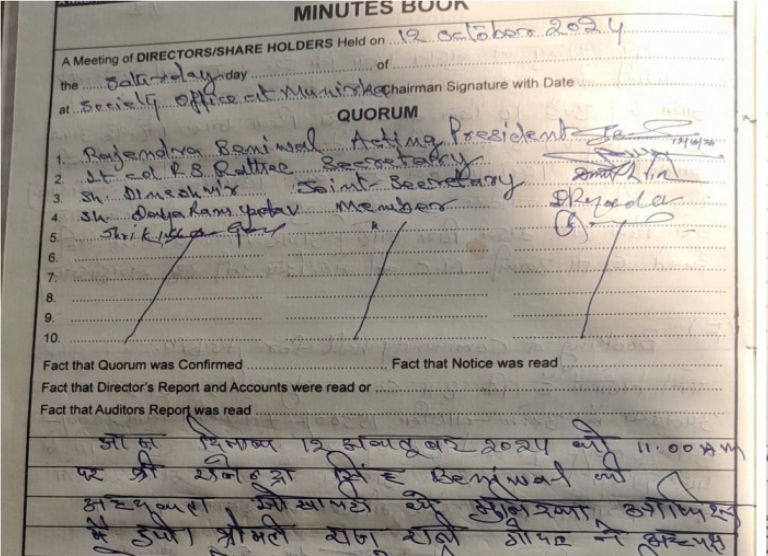 MINUTES BOOK
A Meeting of DIRECTORS/SHARE HOLDERS Held on 12 October 2024
the Saturday day of
at Society Office at Munirka Chairman Signature with Date
QUORUM
1. Rajendra Beniwal Acting President
2. Lt Col R S Rattee Secretary
3. Sh. Dinesh Vir Joint Secretary
4. Sh. Daya Ram Yadav Member
5. Shri
6.
7.
8.
9.
10.
Fact that Quorum was Confirmed Fact that Notice was read
Fact that Director's Report and Accounts were read or
Fact that Auditors Report was read
आज दिनांक 12 अक्तूबर 2024 को 11.00 AM
पर श्री सिंह Beniwal की
अध्यक्षता सोसायटी के मुनिरका
में हुयी। श्रीमती राज गोयल ने